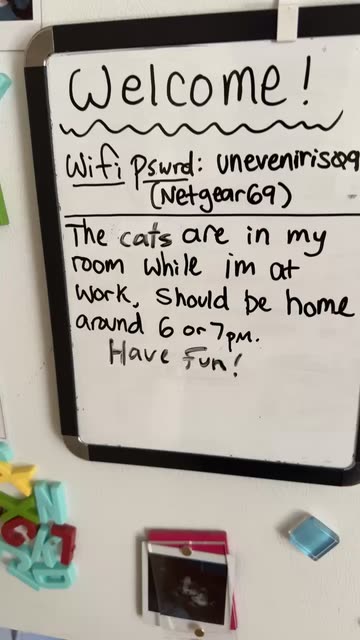 Welcome!
Wifi Pswrd:
(Netgear69)
The cats are in my
room while im at
work, should be home
around 6 or 7pm.
Have fun!